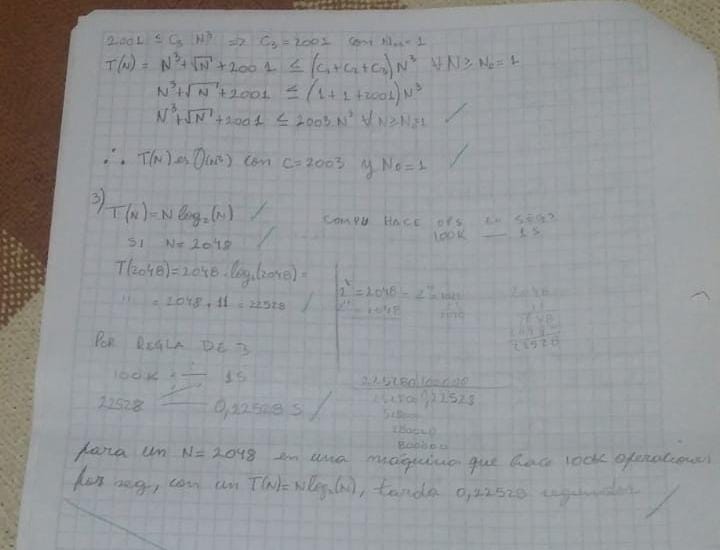 2001 ≤ C₃ N³ => C₃ = 2001 con N₀₃ = 1
T(N) = N³ + √N + 2001 ≤ (C₁ + C₂ + C₃) N³ ∀ N ≥ N₀ = 1
N³ + √N + 2001 ≤ (1 + 1 + 2001) N³
N³ + √N + 2001 ≤ 2003 N³ ∀ N ≥ N₀ = 1
∴ T(N) es O(N³) con C = 2003 y N₀ = 1
3) T(N) = N log₂(N)
SI N = 2048
COMPU HACE OPS EN SEG?
100K — 1S
T(2048) = 2048 . log₂(2048) =
" = 2048 * 11 = 22528
2¹¹ = 2048
2048
11
2048
22528
POR REGLA DE 3
100K — 1S
22528 — 0,22528 S
225280 100000
0,22528
280000
800000
para un N = 2048 en una máquina que hace 100K operaciones
por seg, con un T(N) = N log₂(N), tarda 0,22528 segundos